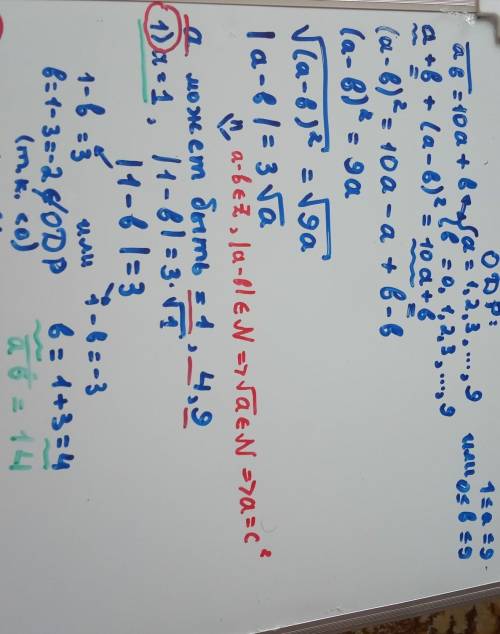 ОДР:
a̅b̅ = 10a + b → { a = 1, 2, 3, ..., 9 1 ≤ a ≤ 9
b = 0, 1, 2, 3, ..., 9 или 0 ≤ b ≤ 9
a + b + (a-b)² = 10a + b
(a-b)² = 10a - a + b - b
(a-b)² = 9a
√(a-b)² = √9a
|a-b| = 3√a
a-b∈Z, |a-b|∈N => √a∈N => a = c²
a может быть = 1, 4, 9
1) a = 1, |1-b| = 3·√1
|1-b| = 3
1-b = 3 или 1-b = -3
b = 1-3 = -2 ∉ ОДР b = 1+3 = 4
(т.к. <0) a̅b̅ = 14